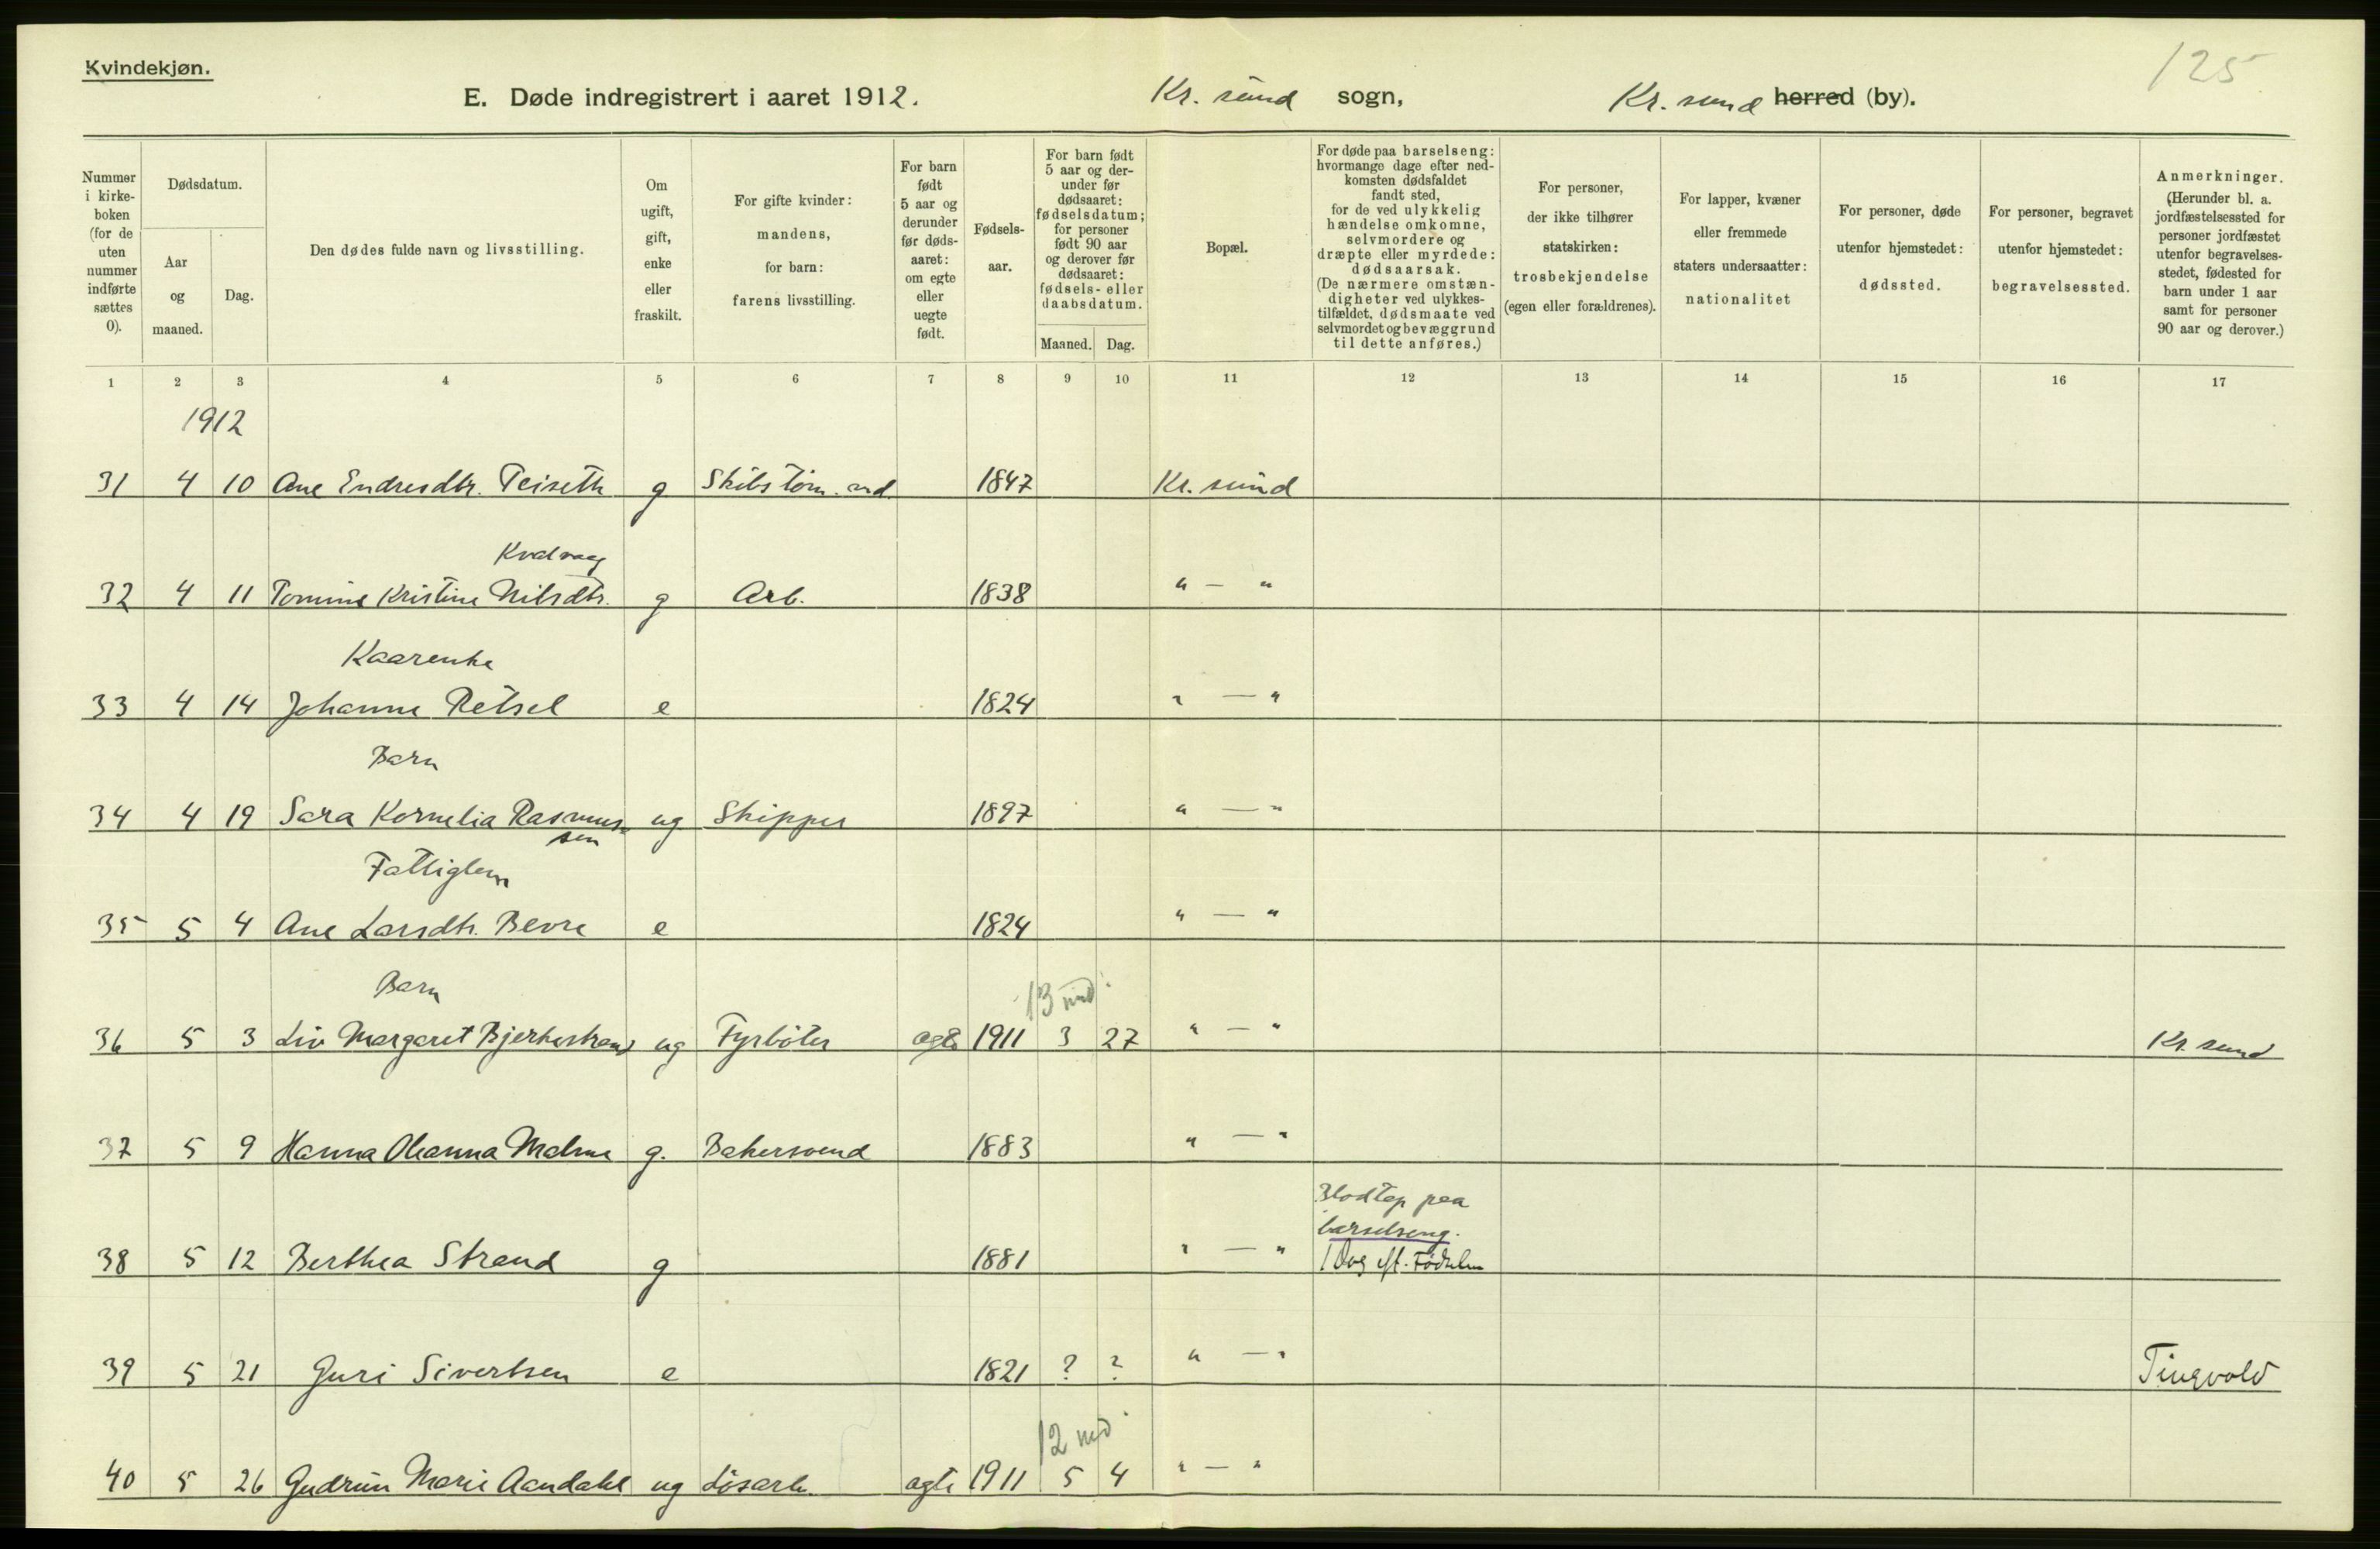 Kvindekjøn.
125
E. Døde indregistrert i aaret 1912. Kr. sund sogn, Kr. sund herred (by).
Nummer i kirkeboken (for de uten nummer indførte sættes 0).
Dødsdatum.
Aar og maaned.
Dag.
Den dødes fulde navn og livsstilling.
Om ugift, gift, enke eller fraskilt.
For gifte kvinder: mandens, for barn: farens livsstilling.
For barn født 5 aar og derunder før dødsaaret: om egte eller uegte født.
Fødselsaar.
For barn født 5 aar og derunder før dødsaaret: fødselsdatum; for personer født 90 aar og derover før dødsaaret: fødsels- eller daabsdatum.
Maaned. Dag.
Bopæl.
For døde paa barselseng: hvormange dage efter nedkomsten dødsfaldet fandt sted, for de ved ulykkelig hændelse omkomne, selvmordere og dræpte eller myrdede: dødsaarsak. (De nærmere omstændigheter ved ulykkestilfældet, dødsmaate ved selvmordet og bevæggrund til dette anføres.)
For personer, der ikke tilhører statskirken: trosbekjendelse (egen eller forældrenes).
For lapper, kvæner eller fremmede staters undersaatter: nationalitet
For personer, døde utenfor hjemstedet: dødssted.
For personer, begravet utenfor hjemstedet: begravelsessted.
Anmerkninger. (Herunder bl. a. jordfæstelsessted for personer jordfæstet utenfor begravelsesstedet, fødested for barn under 1 aar samt for personer 90 aar og derover.)
1 2 3 4 5 6 7 8 9 10 11 12 13 14 15 16 17
1912
31 4 10 Ane Endresdtr. Teiseth g Skibstøm.md 1847 Kr. sund
Kvalvaag
32 4 11 Tomine Kristine Nilsdtr. g Arb. 1838 " — "
Kaarenke
33 4 14 Johanne Retsel e 1824 " — "
Barn
34 4 19 Sara Kornelia Rasmus- ug Skipper 1897 " — "
sen
Fattiglem
35 5 4 Ane Larsdtr. Bevre e 1824 " — "
Barn 13 md.
36 5 3 Liv Margaret Bjerkestrand ug Fyrbøter egte 1911 3 27 " — " Kr. sund
37 5 9 Hanna Oleanna Malme g. Bakersvend 1883 " — "
Blodtap paa
barselseng.
38 5 12 Berthea Strand g 1881 " — " 1 Dag eft. Fødselen
39 5 21 Guri Sivertsen e 1821 ? ? " — " Tingvold
12 md.
40 5 26 Gudrun Marie Aandahl ug Løsarb. egte 1911 5 4 " — "